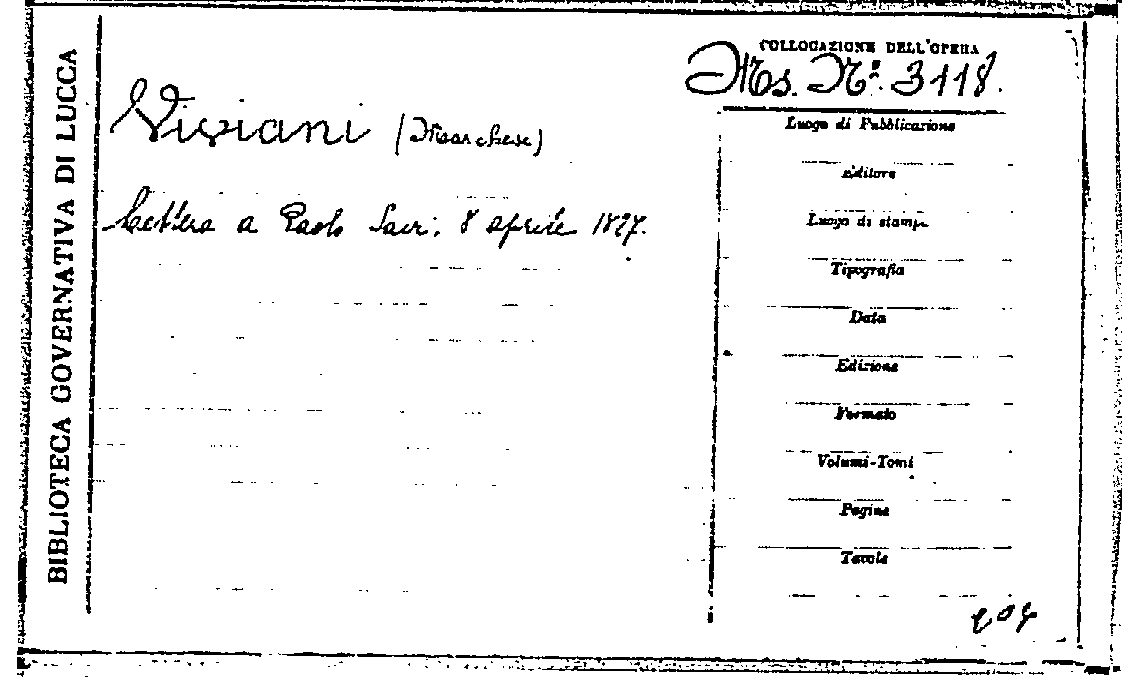 BIBLIOTECA GOVERNATIVA DI LUCCA
COLLOCAZIONE DELL'OPERA
Ms. Nº. 3118.
Viviani (Marchese)
Lettera a Paolo Savi. 8 aprile 1827.
Luogo di Pubblicazione
Editore
Luogo di stampa
Tipografia
Data
Edizione
Formato
Volumi-Tomi
Pagine
Tavole